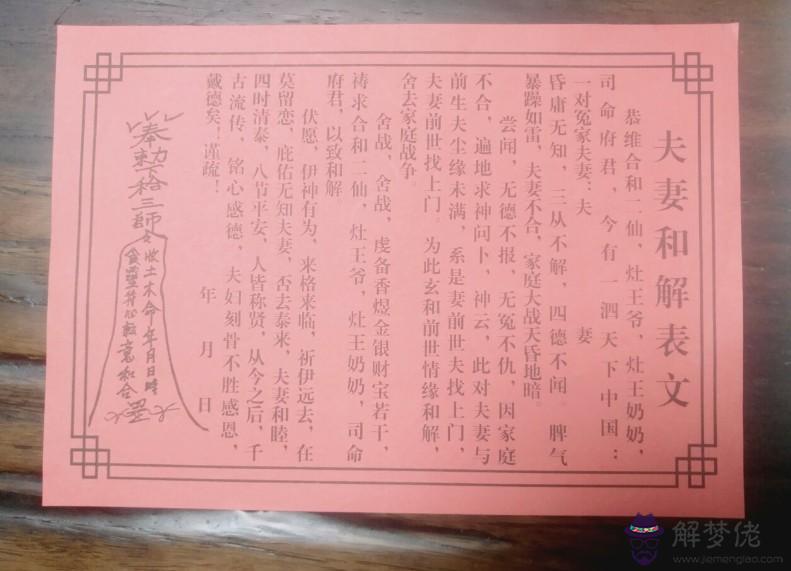 夫妻和解表文
恭维合和二仙，灶王爷，灶王奶奶，
司命府君，今有一泗天下中国：
一对冤家夫妻：夫 妻
昏庸无知，三从不解，四德不闻。脾气
暴躁如雷，夫妻不合，家庭大战天昏地暗。
尝闻，无德不报，无冤不仇，因家庭
不合，遍地求神问卜，神云，此对夫妻与
前生夫尘缘未满，系是妻前世夫找上门，
夫妻前世找上门。为此玄和前世情缘和解，
舍去家庭战争。
舍战，舍战，虔备香煜金银财宝若干，
祷求合和二仙，灶王爷，灶王奶奶，司命
府君，以致和解。
伏愿，伊神有为，来格来临，祈伊远去，在
莫留恋，庇佑无知夫妻，否去泰来，夫妻和睦，
四时清泰，八节平安，人皆称贤，从今之后，千
古流传，铭心感德，夫妇刻骨不胜感恩，
戴德矣！谨疏！
年 月 日
奉勅
三師
收土木命 年月日時
和合
解梦佬
www.jiemenglao.com